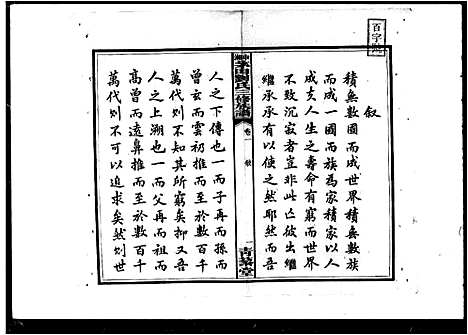 叙
積無數國而成世界積無數族
而成一國而族為家積家以人
成夫人生之壽命有窮而世界
不致沉寂者豈非此亡彼出繼
繼承承有以使之然耶然而吾
三修族譜
卷一
叙
一
青藜堂
人之下傳也一而子再而孫而
曾玄而雲礽推而至於數百千
萬代則不知其所窮矣抑又吾
人之上溯也一而父再而祖而
高曾而遠鼻推而至於數百千
萬代則不可以追求矣然則世